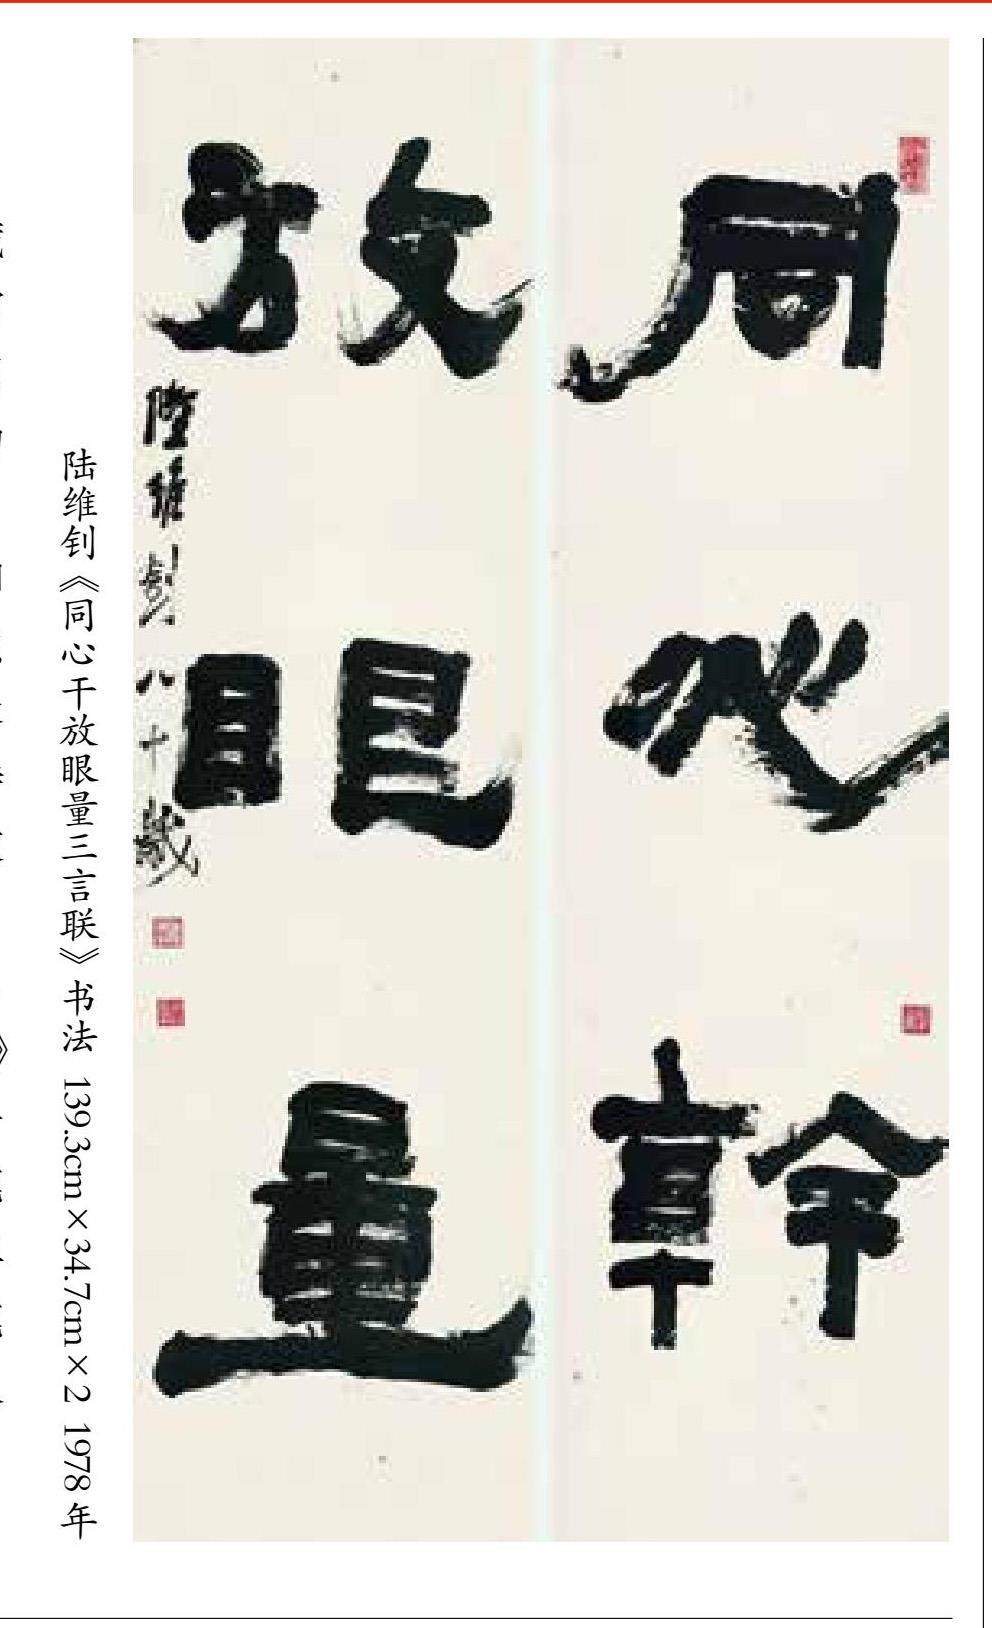 同心幹
放眼量
陸維釗八十歲
陆维钊《同心干放眼量三言联》书法 139.3cm×34.7cm×2 1978年